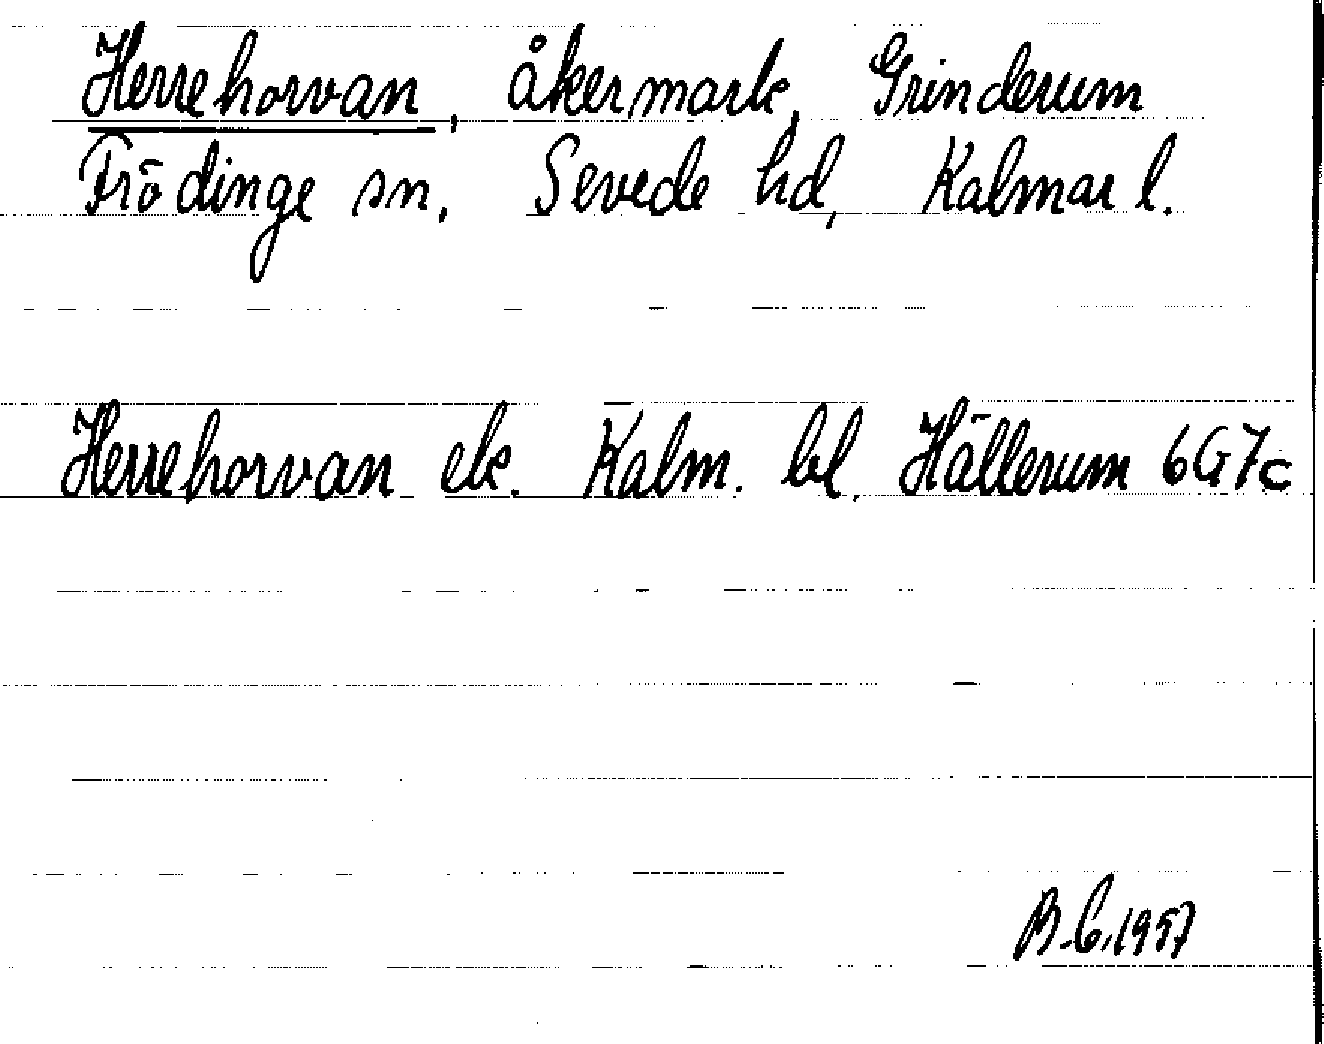 Herrehorvan, åkermark, Grinderum
Frödinge sn, Sevede hd, Kalmar l.
Herrehorvan ek. Kalm. bl. Hällerum 6G7c
B.C.1957